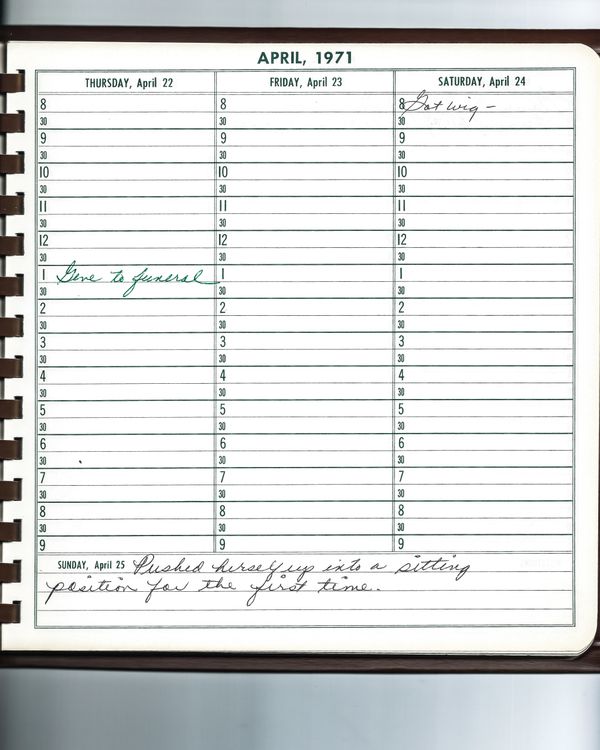 APRIL, 1971
THURSDAY, April 22 FRIDAY, April 23 SATURDAY, April 24
8 8 8 Got wig -
30 30 30
9 9 9
30 30 30
10 10 10
30 30 30
11 11 11
30 30 30
12 12 12
30 30 30
1 Gene to funeral 1 1
30 30 30
2 2 2
30 30 30
3 3 3
30 30 30
4 4 4
30 30 30
5 5 5
30 30 30
6 6 6
30 30 30
7 7 7
30 30 30
8 8 8
30 30 30
9 9 9
SUNDAY, April 25 Pushed herself up into a sitting
position for the first time.